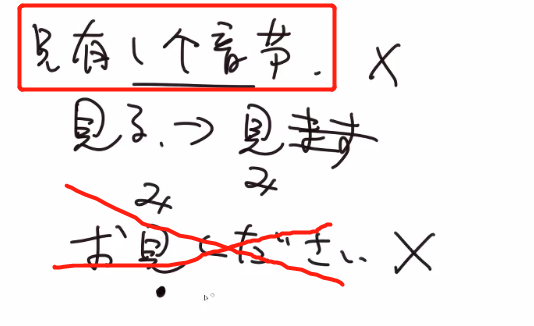 只有1个音节. ×
見る.→見ます
み
み
お見ください ×